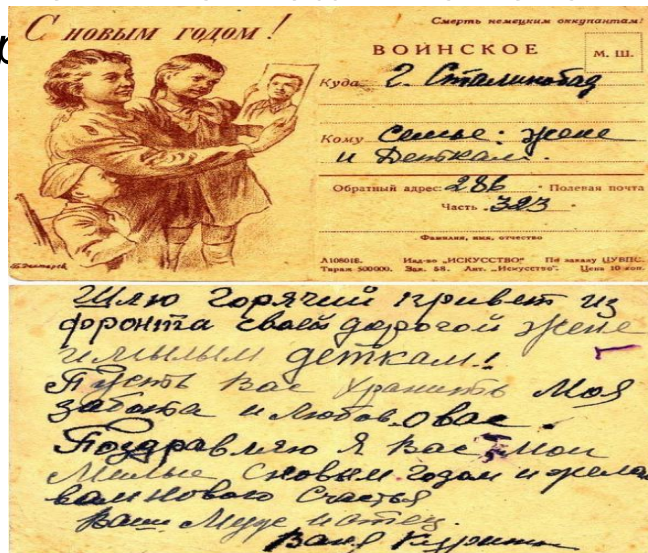 С НОВЫМ ГОДОМ!
Смерть немецким оккупантам!
ВОИНСКОЕ
М. Ш.
Куда г. Сталинобад
Кому Семье: жене
и Деткам.
Обратный адрес: 286 Полевая почта
Часть 323
Фамилия, имя, отчество
Л108018. Изд-во „ИСКУССТВО“ По заказу ЦУВПС.
Тираж 500000. Зак. 58. Лит. „Искусство“. Цена 10 коп.
Шлю горячий привет из
фронта своей дорогой жене
и милым деткам!
Пусть вас хранить моя
забота и любов о вас.
Поздравляю я вас мои
милые с новым годом и желаю
вам нового счастья
Ваш муж и отец.
Ваня